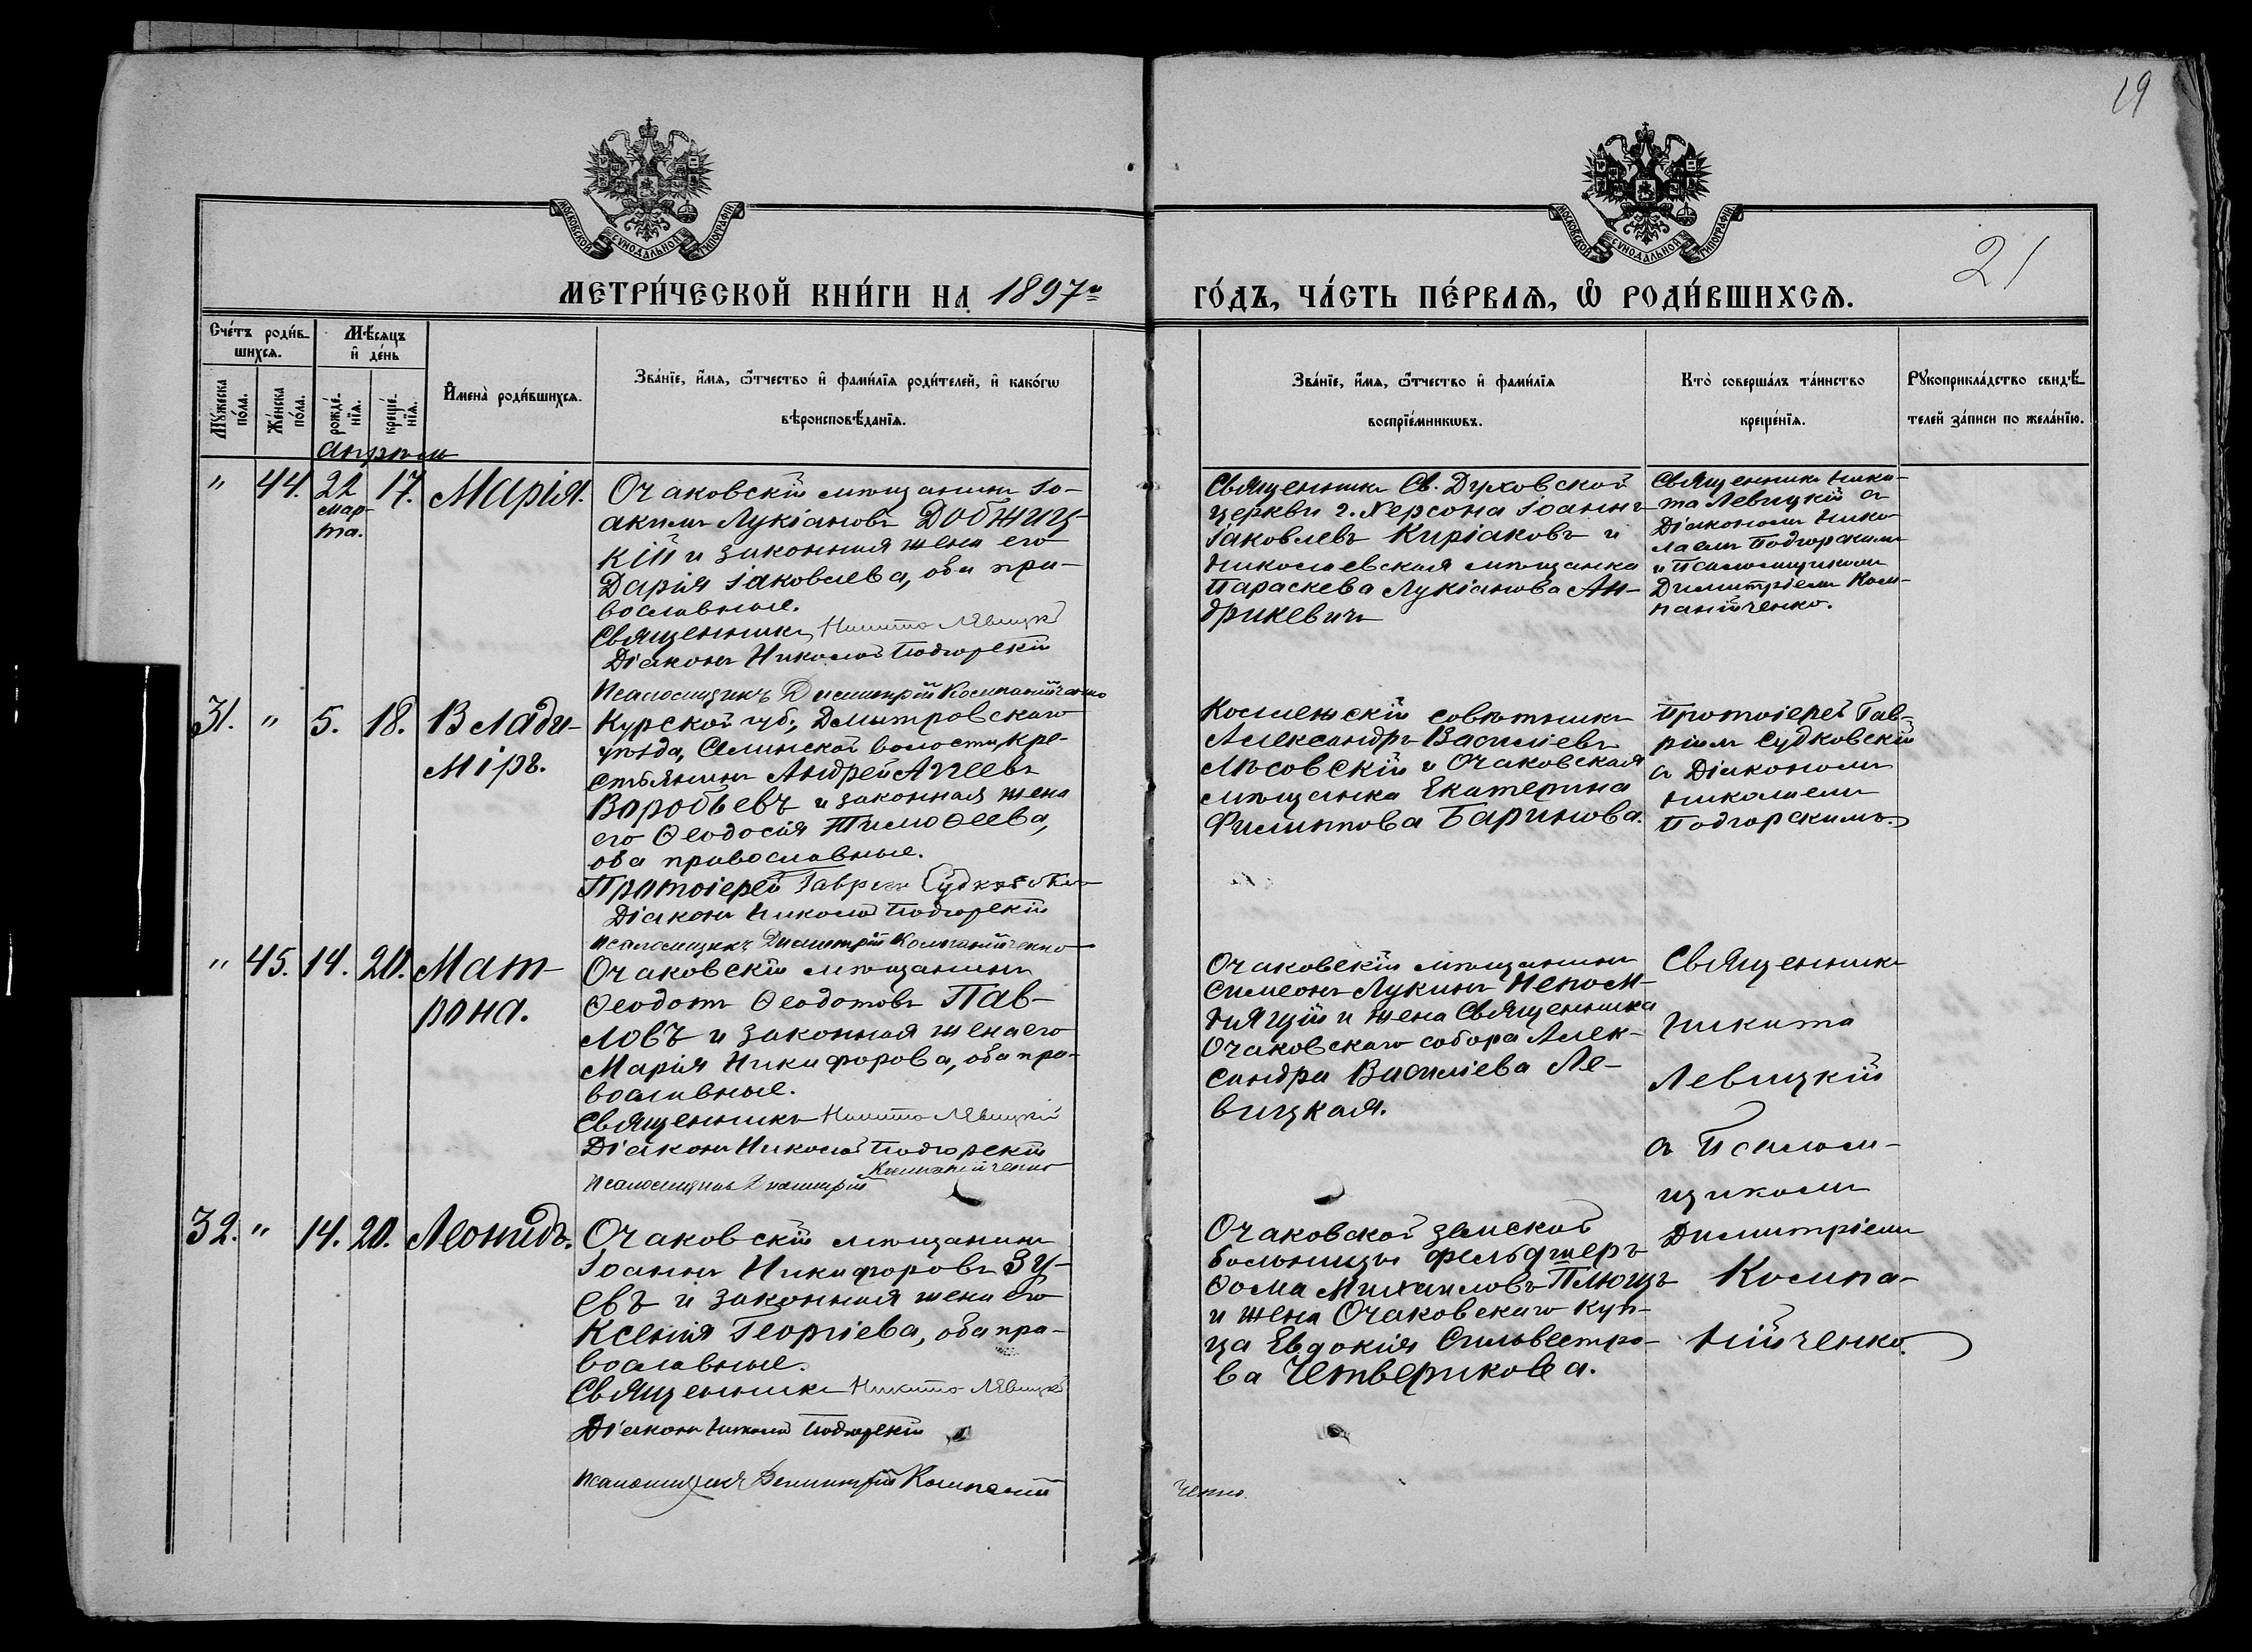 19
МОСКОВСКОЙ СѴНОДАЛЬНОЙ ТИПОГРАФІИ
МОСКОВСКОЙ СѴНОДАЛЬНОЙ ТИПОГРАФІИ
21
МЕТРИ́ЧЕСКОЙ КНИ́ГИ НА 1897й
ГО́ДЪ, ЧА́СТЬ ПЕ́РВАѦ, Ѡ҆ РОДИ́ВШИХСѦ.
Сче́тъ роди́в-
шихсѧ.
Мѣ́сѧцъ
и҆ де́нь
Мꙋ́жеска
по́ла.
Же́нска
по́ла.
рожде́-
нїѧ.
креще́-
нїѧ.
И҆мена̀ роди́вшихсѧ.
Зва́нїе, и҆́мѧ, ѻ҆́тчество и҆ фами́лїѧ роди́телей, и҆ како́гѡ
вѣроисповѣ́данїѧ.
Зва́нїе, и҆́мѧ, ѻ҆́тчество и҆ фами́лїѧ
воспрїе́мникѡвъ.
Кто̀ соверша́лъ та́инство
креще́нїѧ.
Рꙋкоприкла́дство свидѣ́-
телей за́писи по жела́нїю.
Апрѣль
" 44. 22 17. Марія.
мар-
та.
Очаковскій мѣщанинъ Іо-
акимъ Лукіановъ Добжиц-
кій и законная жена его
Дарія Іаковлева, оба пра-
вославные.
Священникъ Никита Левицкій
Діаконъ Николай Подгорскій
Псаломщикъ Димитрій Компанійченко
Священникъ Св. Духовской
церкви г. Херсона Іоаннъ
Іаковлевъ Киріаковъ и
Николаевская мѣщанка
Параскева Лукіанова Ан-
дрикевичъ
Священникъ Ники-
та Левицкій съ
Діакономъ Нико-
лаемъ Подгорскимъ
и Псаломщикомъ
Димитріемъ Ком-
панійченко.
31. " 5. 18. Влади-
міръ.
Курской губ., Дмитровскаго
уѣзда, Селинской волости, кре-
стьянинъ Андрей Агѣевъ
Воробьевъ и законная жена
его Ѳеодосія Тимоѳеева,
оба православные.
Протоіерей Гавріилъ Судковскій
Діаконъ Николай Подгорскій
Псаломщикъ Димитрій Компанійченко
Коллежскій совѣтникъ
Александръ Василіевъ
Лѣсовскій и Очаковская
мѣщанка Екатерина
Филиппова Баринова.
Протоіерей Гав-
ріилъ Судковскій
съ Діакономъ
Николаемъ
Подгорскимъ.
" 45. 14. 20. Мат-
рона.
Очаковскій мѣщанинъ
Ѳеодотъ Ѳеодотовъ Пав-
ловъ и законная жена его
Марія Никифорова, оба пра-
вославные.
Священникъ Никита Левицкій
Діаконъ Николай Подгорскій
Псаломщикъ Димитрій Компанійченко
Очаковскій мѣщанинъ
Симеонъ Лукинъ Непом-
нящій и жена Священника
Очаковскаго собора Алек-
сандра Василіева Ле-
вицкая.
Священникъ
Никита
Левицкій
съ Псалом-
щикомъ
Димитріемъ
Компа-
нійченко.
32. " 14. 20. Леонидъ.
Очаковскій мѣщанинъ
Іоаннъ Никифоровъ Зу-
евъ и законная жена его
Ксенія Георгіева, оба пра-
вославные.
Священникъ Никита Левицкій
Діаконъ Николай Подгорскій
Псаломщикъ Димитрій Компаній
ченко.
Очаковской земской
больницы фельдшеръ
Ѳома Михаиловъ Плющъ
и жена Очаковскаго куп-
ца Евдокія Сильвестро-
ва Четверикова.